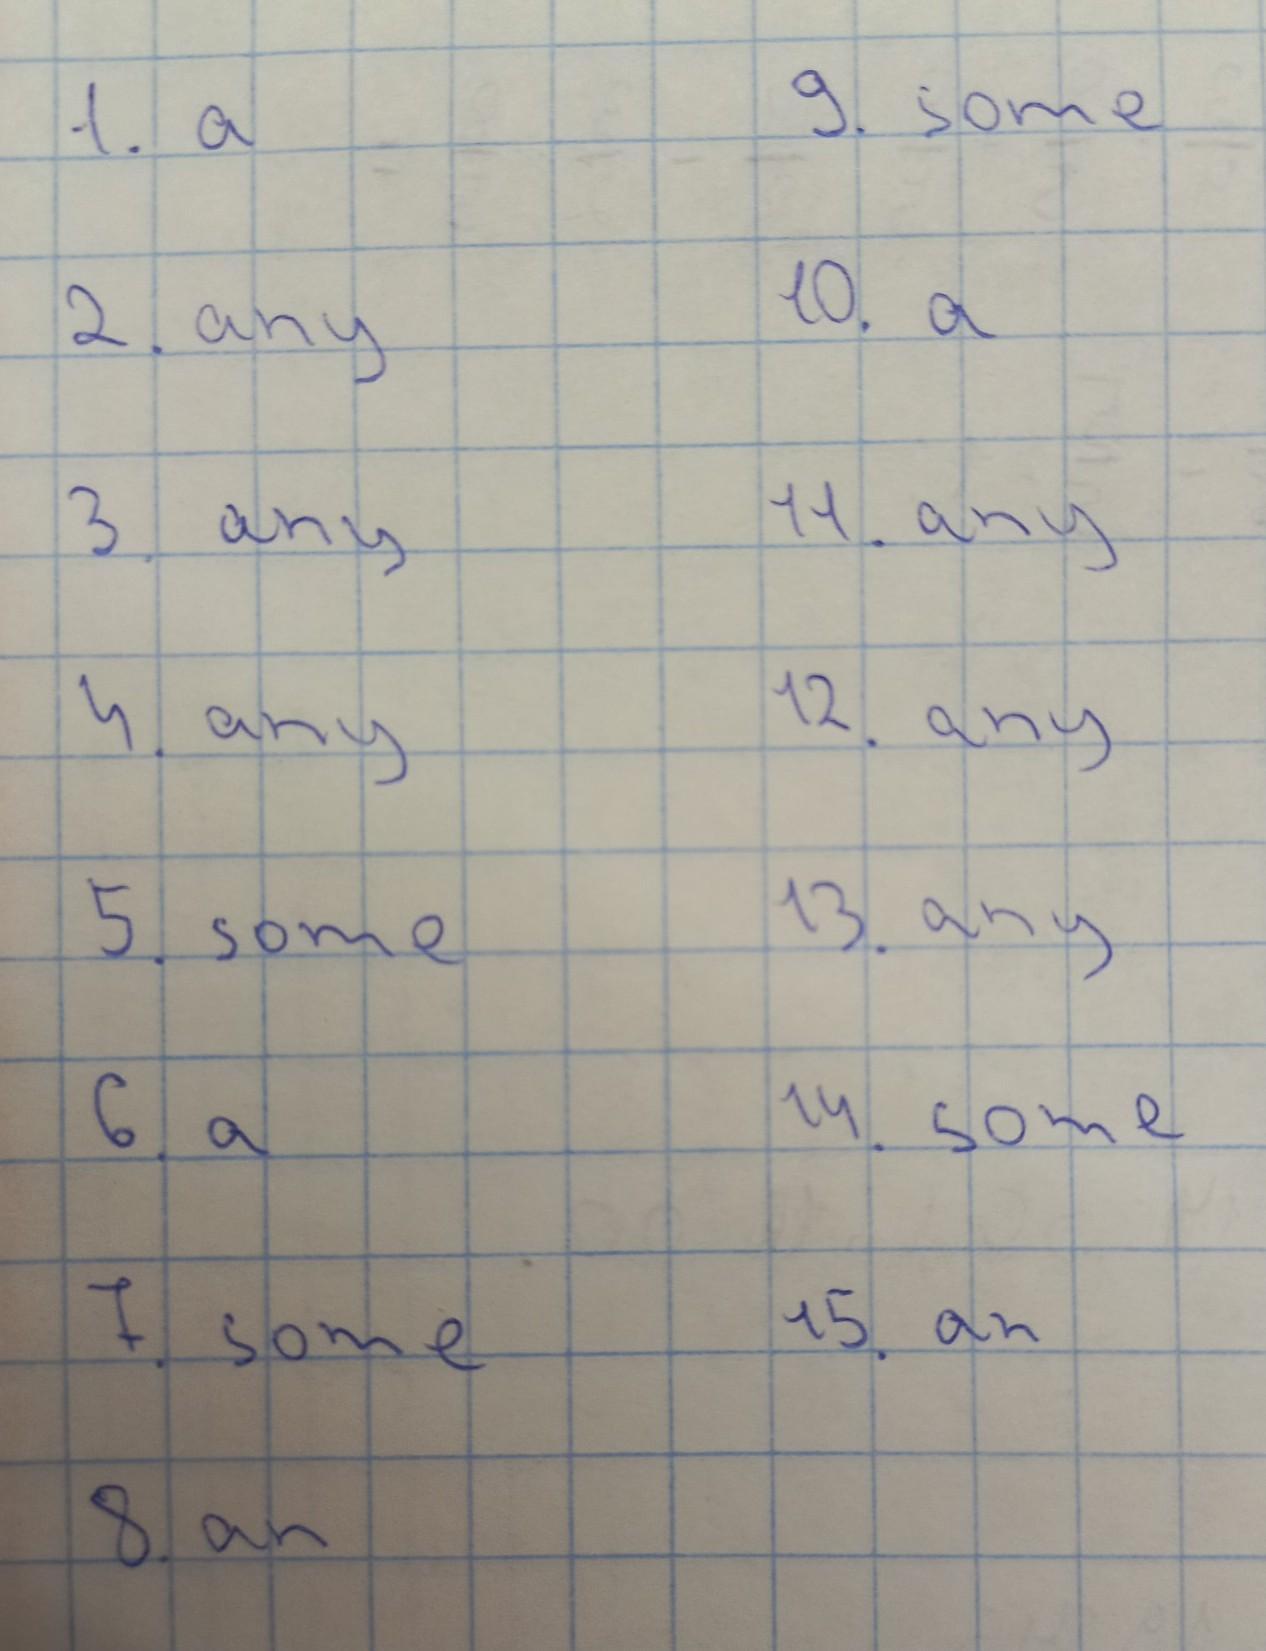 1. a
2. any
3. any
4. any
5. some
6. a
7. some
8. an
9. some
10. a
11. any
12. any
13. any
14. some
15. an